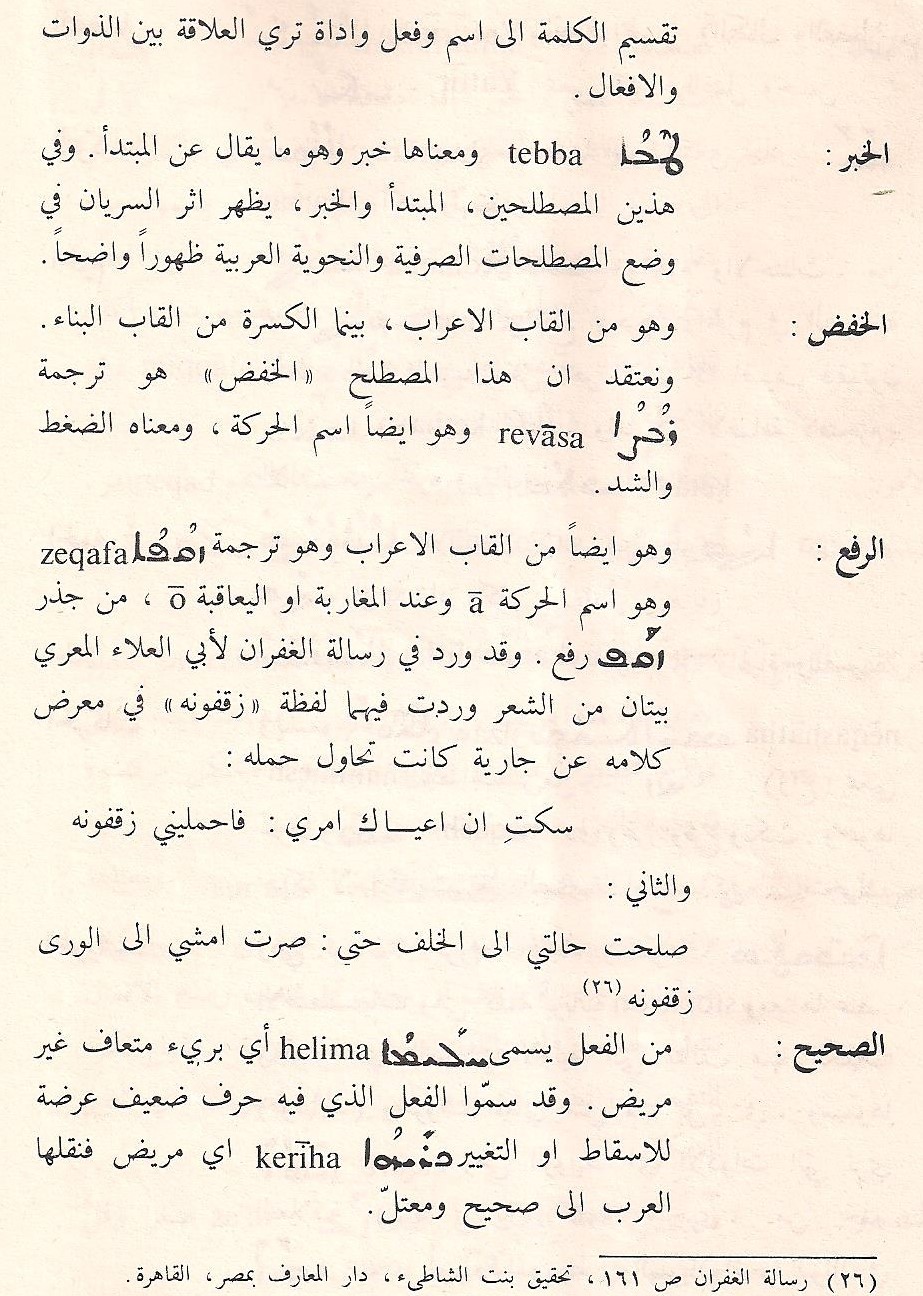 تقسيم الكلمة الى اسم وفعل واداة تري العلاقة بين الذوات
والافعال .
الخبر : ܛܒܐ tebba ومعناها خبر وهو ما يقال عن المبتدأ . وفي
هذين المصطلحين ، المبتدأ والخبر ، يظهر اثر السريان في
وضع المصطلحات الصرفية والنحوية العربية ظهوراً واضحاً .
الخفض : وهو من القاب الاعراب ، بينما الكسرة من القاب البناء .
ونعتقد ان هذا المصطلح «الخفض» هو ترجمة
ܪܒܨܐ revāsa وهو ايضاً اسم الحركة ، ومعناه الضغط
والشد .
الرفع : وهو ايضاً من القاب الاعراب وهو ترجمة ܙܩܦܐ zeqafa
وهو اسم الحركة ā وعند المغاربة او اليعاقبة ō ، من جذر
ܙܩܦ رفع . وقد ورد في رسالة الغفران لأبي العلاء المعري
بيتان من الشعر وردت فيهما لفظة «زقفونه» في معرض
كلامه عن جارية كانت تحاول حمله :
سكتِ ان اعياك امري : فاحمليني زقفونه
والثاني :
صلحت حالتي الى الخلف حتى : صرت امشي الى الورى
زقفونه (٢٦)
الصحيح : من الفعل يسمى ܚܠܝܡܐ helima أي بريء متعاف غير
مريض . وقد سمّوا الفعل الذي فيه حرف ضعيف عرضة
للاسقاط او التغيير ܟܪܝܗܐ kerīha اي مريض فنقلها
العرب الى صحيح ومعتلّ .
(٢٦) رسالة الغفران ص ١٦١ ، تحقيق بنت الشاطىء ، دار المعارف بمصر ، القاهرة .